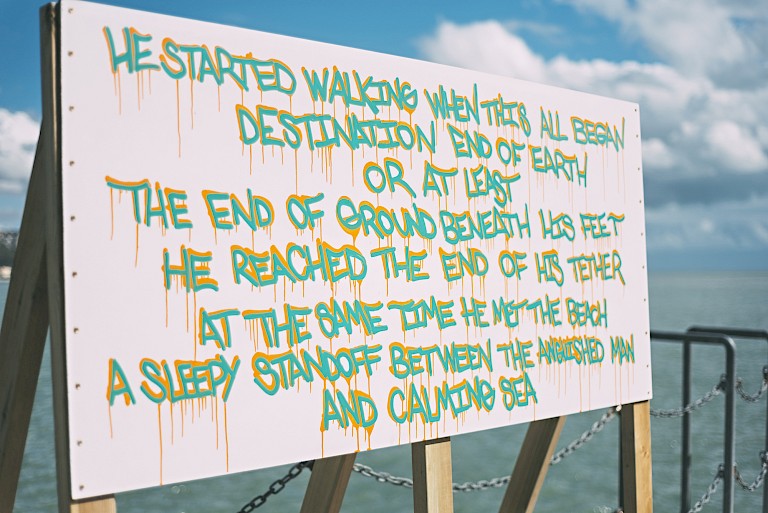 HE STARTED WALKING WHEN THIS ALL BEGAN
DESTINATION END OF EARTH
OR AT LEAST
THE END OF GROUND BENEATH HIS FEET
HE REACHED THE END OF HIS TETHER
AT THE SAME TIME HE MET THE BEACH
A SLEEPY STANDOFF BETWEEN THE ANGUISHED MAN
AND CALMING SEA